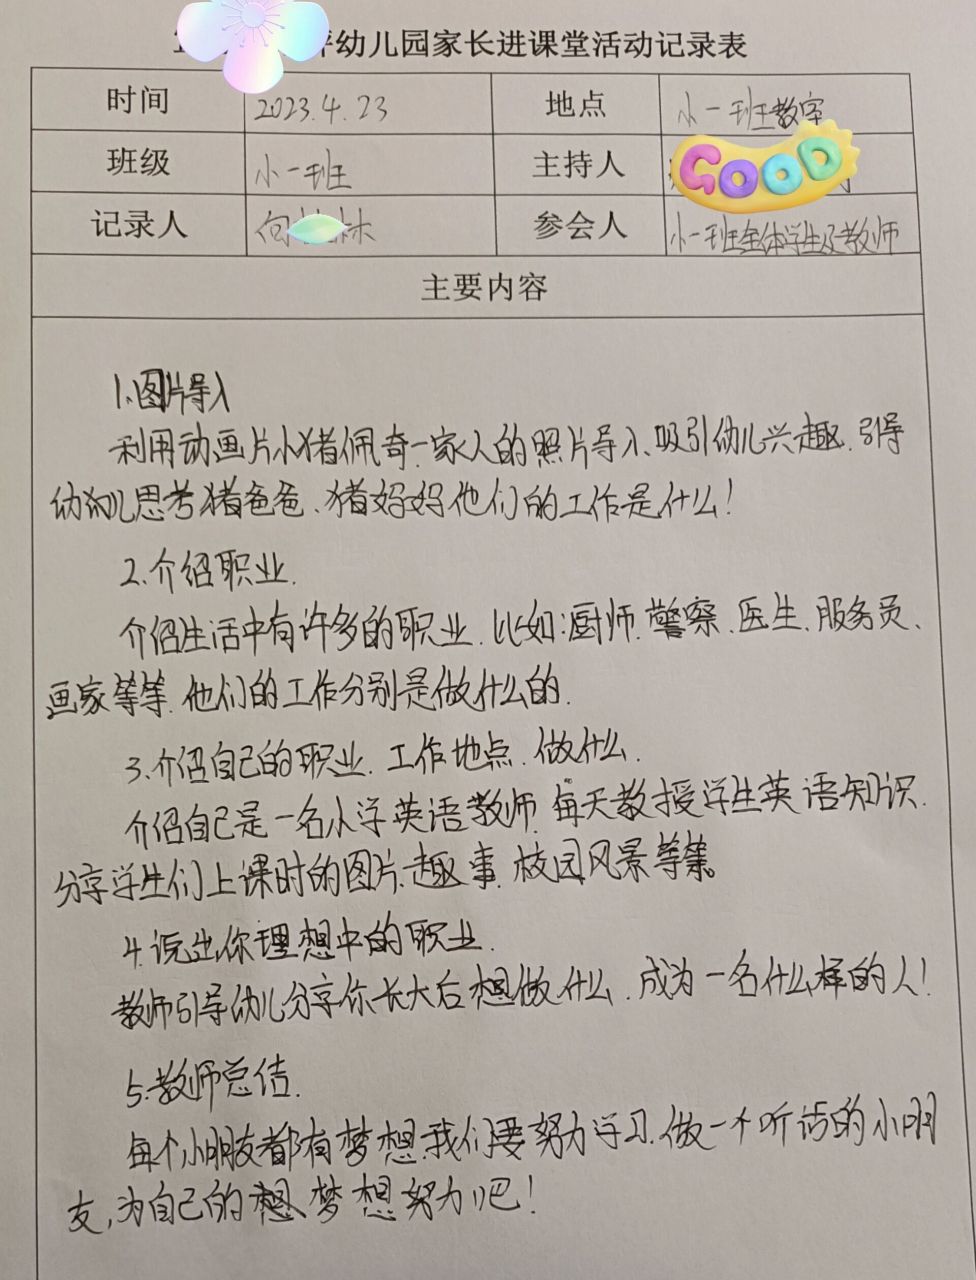 坪幼儿园家长进课堂活动记录表
时间 2023.4.23 地点 小一班教室
班级 小一班 主持人 GOOD
记录人 向 林 参会人 小一班全体学生及教师
主要内容
1.图片导入
利用动画片小猪佩奇一家人的照片导入、吸引幼儿兴趣.引导
幼儿思考猪爸爸、猪妈妈他们的工作是什么!
2.介绍职业.
介绍生活中有许多的职业.比如:厨师.警察.医生.服务员、
画家等等.他们的工作分别是做什么的.
3.介绍自己的职业.工作地点.做什么.
介绍自己是一名小学英语教师.每天教授学生英语知识.
分享学生们上课时的图片.趣事.校园风景等等。
4.说出你理想中的职业.
教师引导幼儿分享你长大后想做什么.成为一名什么样的人!
5.教师总结.
每个小朋友都有梦想.我们要努力学习.做一个听话的小朋
友,为自己的梦想努力吧!